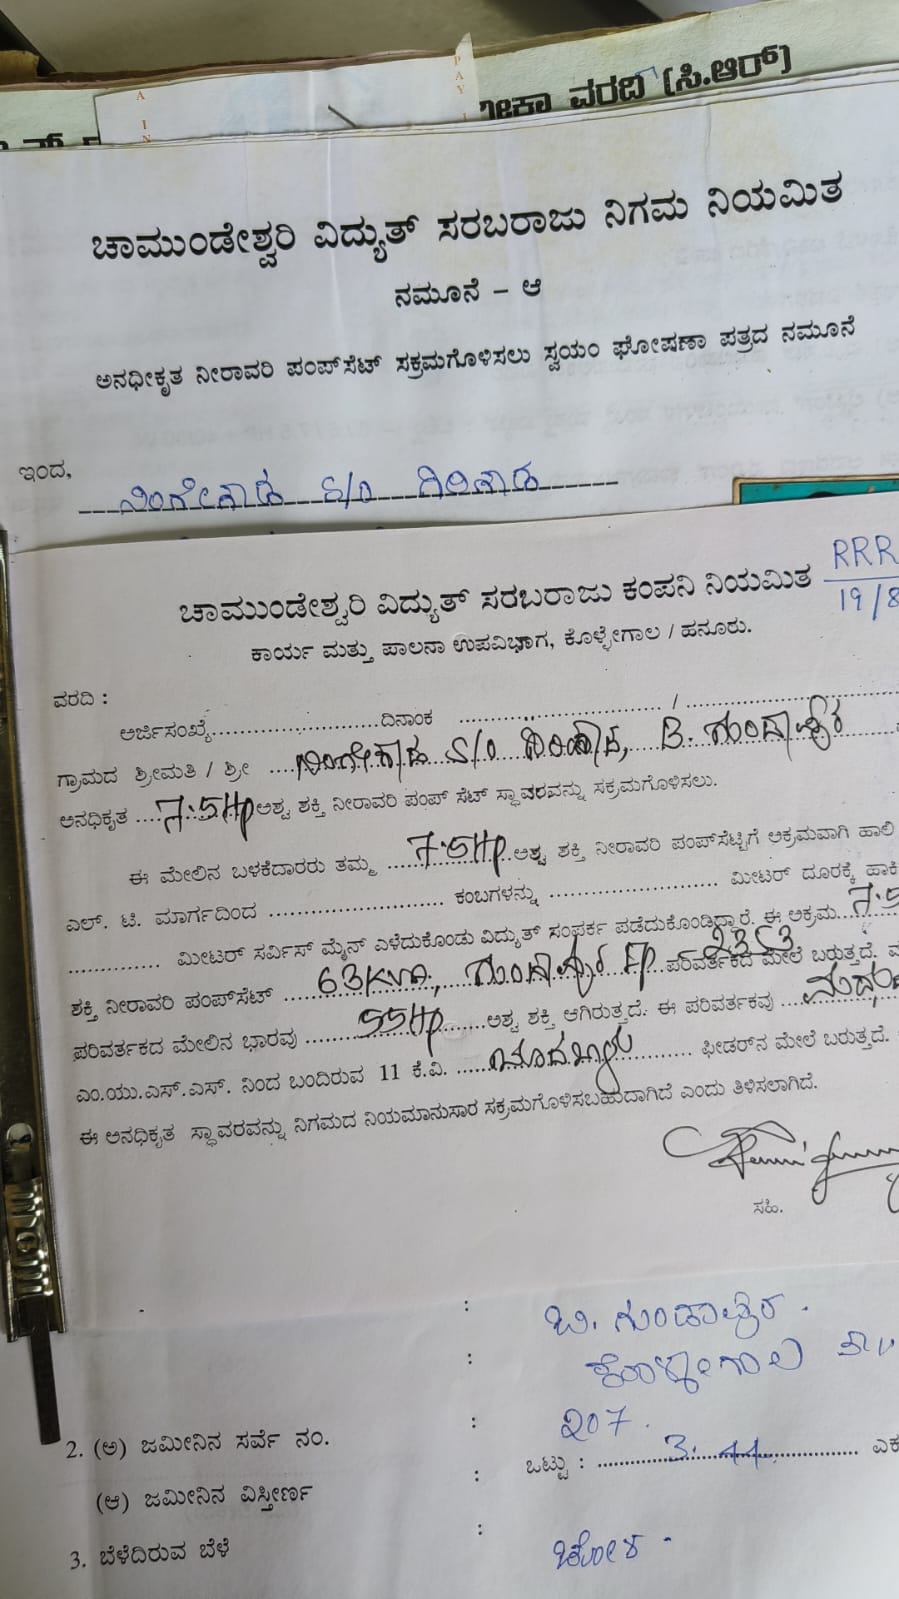 A IN
PAY
ವರದಿ (ಸಿ.ಆರ್)
ಚಾಮುಂಡೇಶ್ವರಿ ವಿದ್ಯುತ್ ಸರಬರಾಜು ನಿಗಮ ನಿಯಮಿತ
ನಮೂನೆ – ಆ
ಅನಧೀಕೃತ ನೀರಾವರಿ ಪಂಪ್‌ಸೆಟ್ ಸಕ್ರಮಗೊಳಿಸಲು ಸ್ವಯಂ ಘೋಷಣಾ ಪತ್ರದ ನಮೂನೆ
ಇಂದ,
S/O
RRR
19/8
ಚಾಮುಂಡೇಶ್ವರಿ ವಿದ್ಯುತ್ ಸರಬರಾಜು ಕಂಪನಿ ನಿಯಮಿತ
ಕಾರ್ಯ ಮತ್ತು ಪಾಲನಾ ಉಪವಿಭಾಗ, ಕೊಳ್ಳೇಗಾಲ / ಹನೂರು.
ವರದಿ :
ಅರ್ಜಿಸಂಖ್ಯೆ....................ದಿನಾಂಕ .................... / ....................
ಗ್ರಾಮದ ಶ್ರೀಮತಿ / ಶ್ರೀ S/O B.
ಅನಧಿಕೃತ 7.5HP ಅಶ್ವ ಶಕ್ತಿ ನೀರಾವರಿ ಪಂಪ್ ಸೆಟ್ ಸ್ಥಾವರವನ್ನು ಸಕ್ರಮಗೊಳಿಸಲು.
ಈ ಮೇಲಿನ ಬಳಕೆದಾರರು ತಮ್ಮ 7.5HP ಅಶ್ವ ಶಕ್ತಿ ನೀರಾವರಿ ಪಂಪ್‌ಸೆಟ್ಟಿಗೆ ಅಕ್ರಮವಾಗಿ ಹಾಲಿ
ಎಲ್. ಟಿ. ಮಾರ್ಗದಿಂದ .................... ಕಂಬಗಳನ್ನು .................... ಮೀಟರ್ ದೂರಕ್ಕೆ
.............. ಮೀಟರ್ ಸರ್ವಿಸ್ ಮೈನ್ ಎಳೆದುಕೊಂಡು ವಿದ್ಯುತ್ ಸಂಪರ್ಕ ಪಡೆದುಕೊಂಡಿದ್ದಾರೆ. ಈ ಅಕ್ರಮ
ಶಕ್ತಿ ನೀರಾವರಿ ಪಂಪ್‌ಸೆಟ್ 63KVA, ಪರಿವರ್ತಕದ ಮೇಲೆ ಬರುತ್ತದೆ.
ಪರಿವರ್ತಕದ ಮೇಲಿನ ಭಾರವು 55HP ಅಶ್ವ ಶಕ್ತಿ ಆಗಿರುತ್ತದೆ. ಈ ಪರಿವರ್ತಕವು
ಎಂ.ಯು.ಎಸ್.ಎಸ್. ನಿಂದ ಬಂದಿರುವ 11 ಕೆ.ವಿ. ಫೀಡರ್‌ನ ಮೇಲೆ ಬರುತ್ತದೆ.
ಈ ಅನಧಿಕೃತ ಸ್ಥಾವರವನ್ನು ನಿಗಮದ ನಿಯಮಾನುಸಾರ ಸಕ್ರಮಗೊಳಿಸಬಹುದಾಗಿದೆ ಎಂದು ತಿಳಿಸಲಾಗಿದೆ.
ಸಹಿ.
:
: ಕೊಳ್ಳೇಗಾಲ
2. (ಅ) ಜಮೀನಿನ ಸರ್ವೆ ನಂ. : 207.
(ಆ) ಜಮೀನಿನ ವಿಸ್ತೀರ್ಣ : ಒಟ್ಟು : 3.44
3. ಬೆಳೆದಿರುವ ಬೆಳೆ : ಜೋಳ -